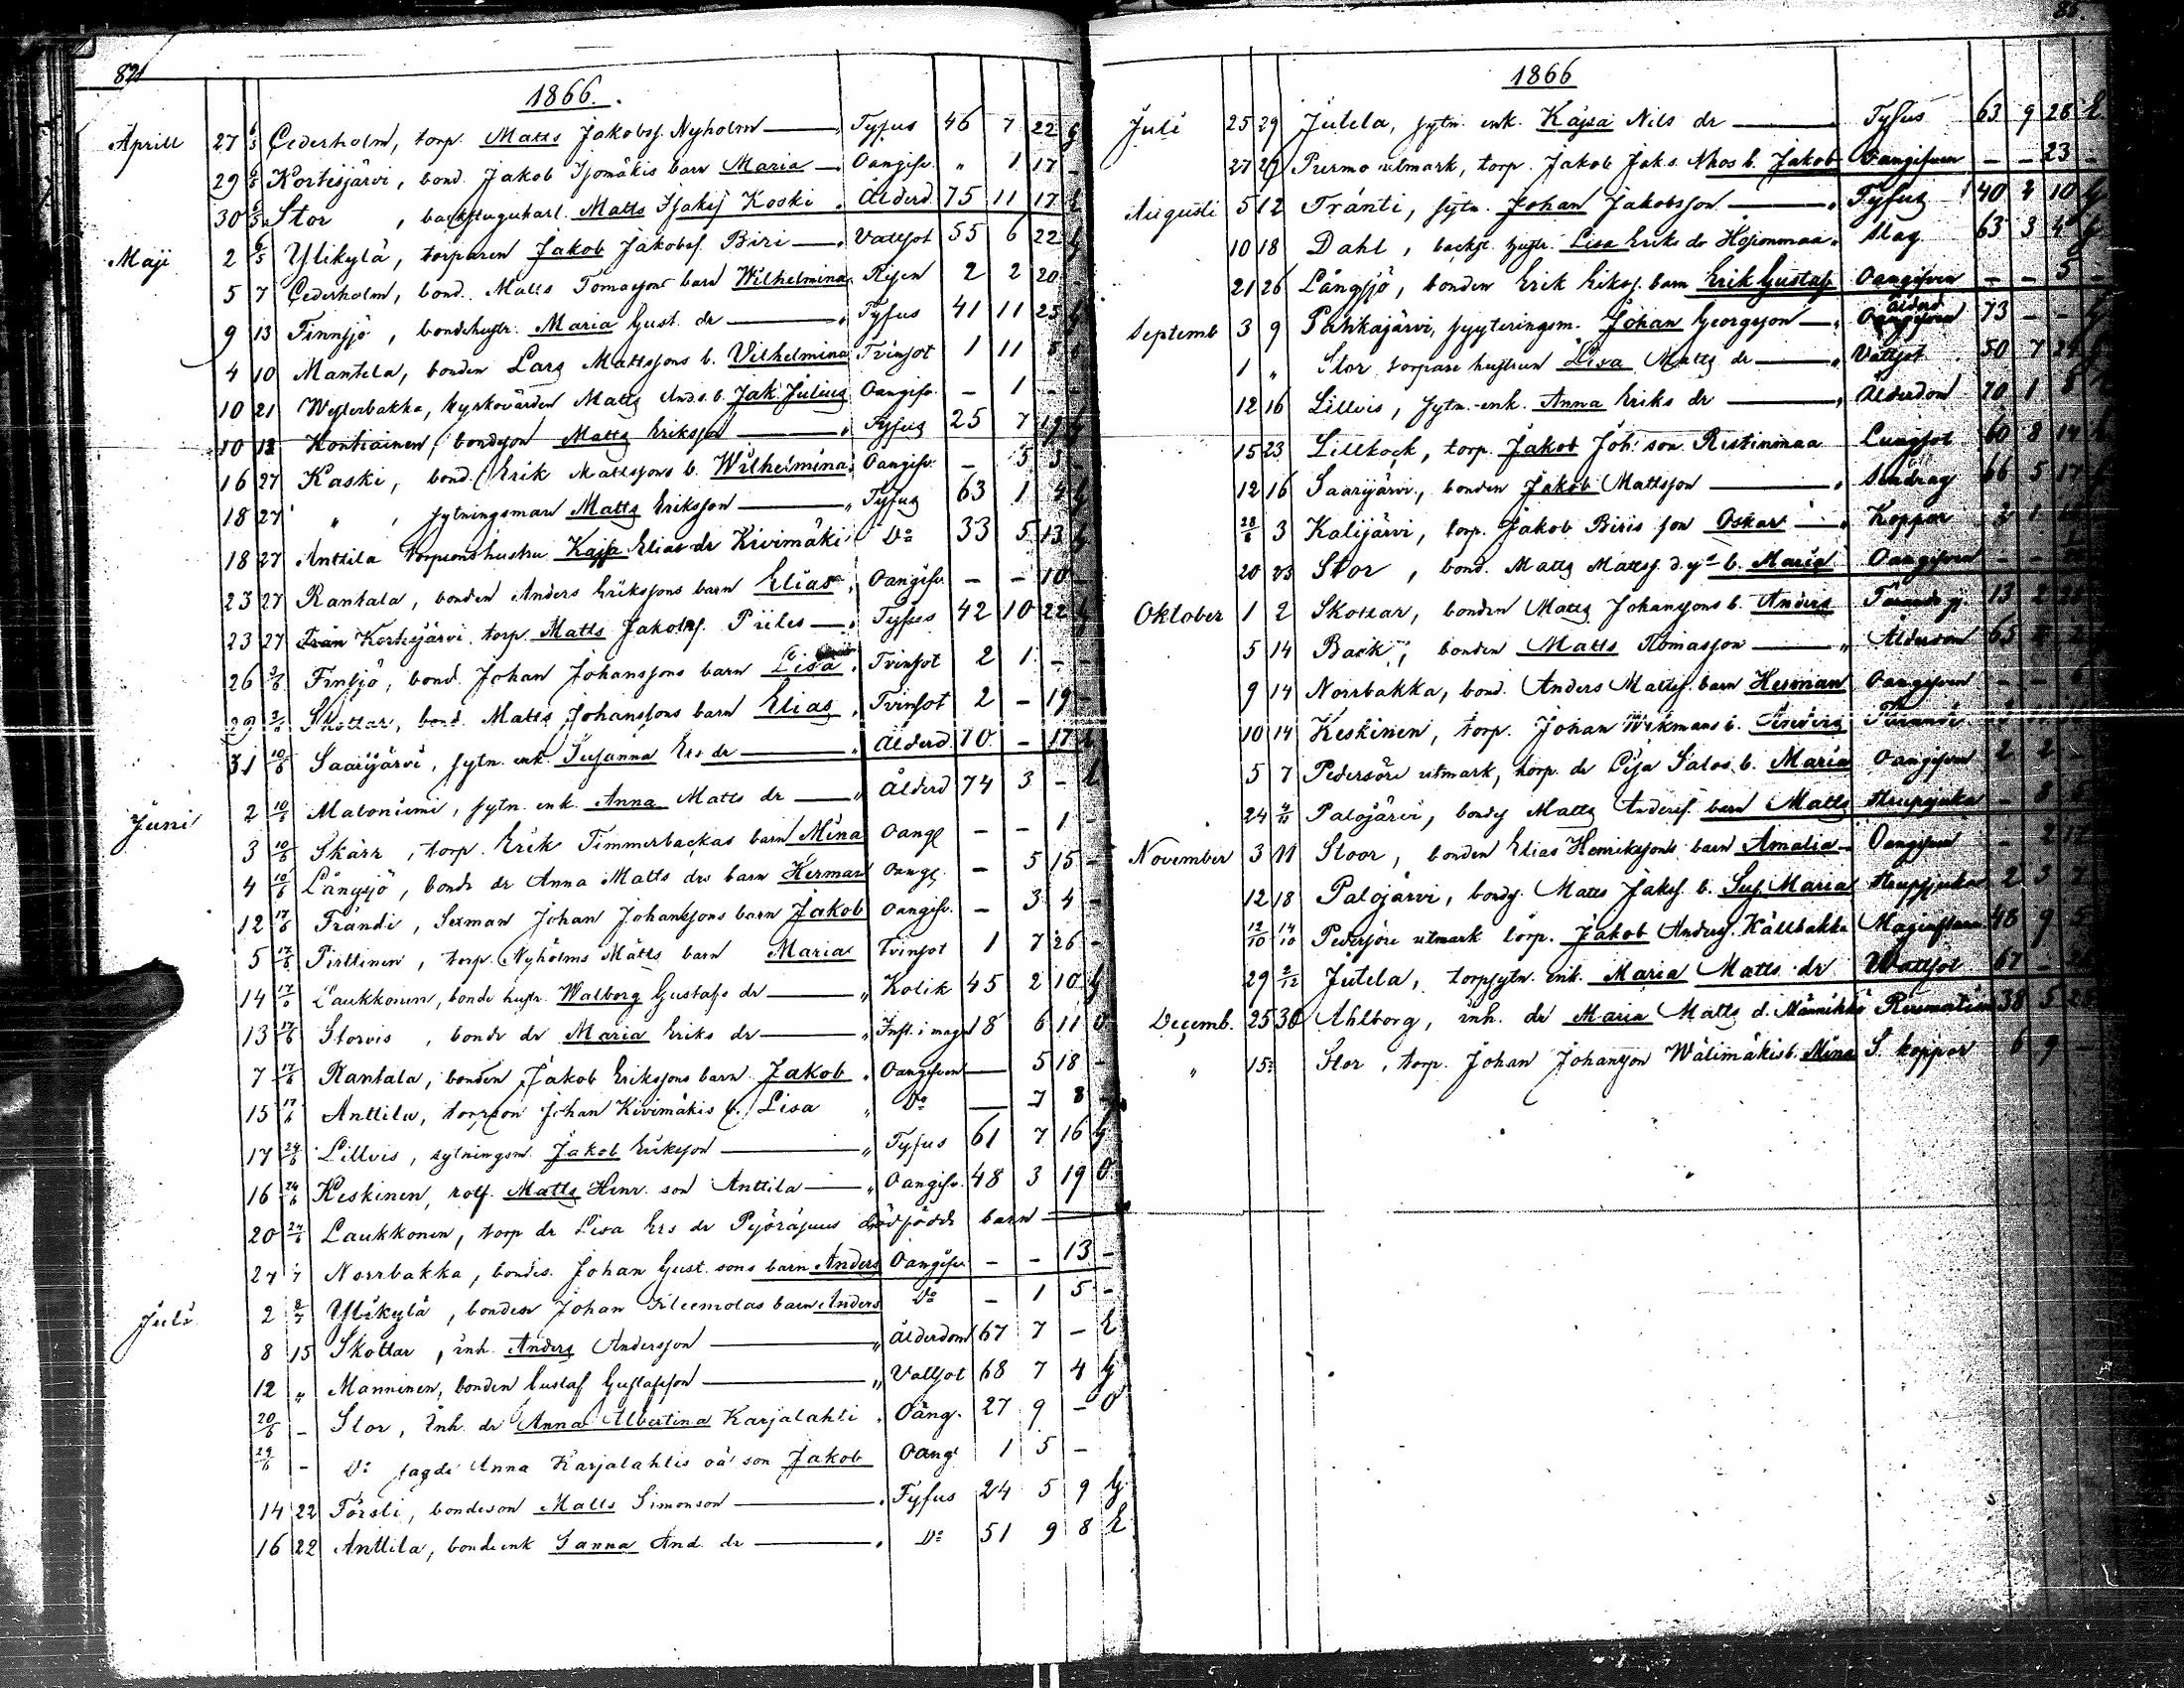 821
1866.
Aprill 27 6/5 Cederholm, torp. Matts Jakobss. Nyholm — Tyfus 46 7 22 G
29 6/5 Kortesjärvi, bond. Jakob Isomäkis barn Maria — Oangifv. " 1 17 -
30 6/5 Stor, backstuguharl. Matts Isaks Koski Ålderd 75 11 17 E
Maji 2 6/5 Ylikylä, torparen Jakob Jakobss. Biri — Vattsot 55 6 22 G
5 7 Cederholm, bond. Matts Tomassons barn Wilhelmina Risen 2 2 20 -
9 13 Finnsjö, bondehustr. Maria Gust. dr — Tyfus 41 11 23 G
4 10 Mantela, bonden Lars Mattssons b. Vilhelmina Tvinsot 1 11 5
10 21 Westerbakka, kyrkovärden Matts And.s. b. Jak. Julius Oangifv. - 1 -
10 12 Kontiainen, bondson Matts Eriksson — Tyfus 25 7 19 G
16 27 Kaski, bond. Erik Mattssons b. Wilhelmina Oangifv. - 5 3 -
18 27 " , sytningsman Matts Eriksson — Tyfus 63 1 4 G
18 27 Anttila torpionshustru Kajsa Elias dr Kivimäki Do 33 5 13 G
23 27 Rantala, bonden Anders Erikssons barn Elias Oangifv. - - 10 -
23 27 Från Kortesjärvi torp. Matts Jakobss. Piiles — Tyfus 42 10 22 G
26 3/6 Finsjö, bond. Johan Johanssons barn Lisa Tvinsot 2 1 - -
29 3/6 Skottar, bond. Matts Johanssons barn Elias Tvinsot 2 - 19 -
31 10/6 Saarijärvi, sytn. enk. Susanna Ers dr — Ålderd 70 - 17 E
Juni 2 10/6 Matoniemi, sytn. enk. Anna Matts dr — Ålderd 74 3 - E
3 10/6 Skärr, torp. Erik Timmerbackas barn Mina Oang - - 1 -
4 10/6 Långsjö, bonde dr Anna Matts drs barn Herman Oang. - 5 15 -
12 17/6 Trändi, Sexman Johan Johanssons barn Jakob Oangifv. - 3 4 -
5 17/6 Pirttinen, torp. Nyholms Matts barn Maria Tvinsot 1 7 26 -
14 17/6 Laukkonen, bonde hustr. Walborg Gustafs dr — Kolik 45 2 10 G
13 17/6 Storvis, bonde dr Maria Eriks dr — Infl. i mage 18 6 11 O
7 17/6 Rantala, bonden Jakob Erikssons barn Jakob Oangifven — 5 18 -
15 17/6 Anttila, torpson Johan Kivimäkis b. Lisa Do — 7 8
17 24/6 Lillvis, sytningsm. Jakob Eriksson — Tyfus 61 7 16 G
16 24/6 Keskinen, rotf. Matts Henr. son Anttila — Oangifv. 48 3 19 O
20 24/6 Laukkonen, torp dr Lisa Ers dr Pyöräsuus dödfödde barn —
27 1/7 Norrbakka, bondes. Johan Gust. sons barn Anders Oangifv. - - 13 -
Juli 2 8/7 Ylikylä, bonden Johan Kleemolas barn Anders Do - 1 5 -
8 15 Skottar, inh. Anders Andersson — Ålderdom 67 7 - E
12 " Manninen, bonden Gustaf Gustafsson — Vattsot 68 7 4 G
20/6 - Stor, Inh. dr Anna Albertina Karjalahti Oang. 27 9 - O
29/6 - Do sagde Anna Karjalahtis oä son Jakob Oang 1 5 -
14 22 Försti, bondeson Matts Simonson — Tyfus 24 5 9 G
16 22 Anttila, bondeenk Sanna And. dr — Do 51 9 8 E
1866
Juli 25 29 Jutela, sytn. enk. Kajsa Nils dr — Tyfus 63 9 28 E
27 29 Purmo utmark, torp. Jakob Jak.s. Nhos b. Jakob Oangifven - - 23 -
Augusti 5 12 Tränti, sytn. Johan Jakobsson — Tyfus 40 2 10 G
10 18 Dahl, backst. hustr. Lisa Eriks dr Hosionmaa Slag 63 3 4 G
21 26 Långsjö, bonden Erik Erikss. barn Erik Gustaf Oangifven - - 5 -
Septemb 3 9 Pahkajärvi, syyteringsm. Johan Georgsson — Ålderd 73 - - G
1 " Stor torpare hustrun Lisa Matts dr — Vattsot 50 7 24 G
12 16 Lillvis, sytn.-enk. Anna Eriks dr — Ålderdom 70 1 8 E
15 23 Lillkock, torp. Jakob Joh. son Ristinmaa Lungsot 60 8 14
12 16 Saarijärvi, bonden Jakob Mattsson — 66 5 17
28/8 3 Kalijärvi, torp. Jakob Biris son Oskar — Koppor 2 1
20 23 Stor, bond. Matts Mattss. d.y. b. Maria Oangifven - -
Oktober 1 2 Skottar, bonden Matts Johanssons b. Anders 13 2
5 14 Back, bonden Matts Tomasson — Ålderdom 65
9 14 Norrbakka, bond. Anders Mattss. barn Herman Oangifven - - 6
10 14 Keskinen, torp. Johan Wikmans b. Anders
5 7 Pedersöre utmark, torp. dr Lisa Salos b. Maria Oangifven 2 2 -
24 4/11 Palojärvi, bonds Matts Anderss. barn Matts Strupsjuka - 8 5
November 3 11 Stoor, bonden Elias Henrikssons barn Amalia — Oangifven - 2 17
12 18 Palojärvi, bonds. Matts Jakss. b. Sus. Maria Strupsjuka 2 3 7
12/10 14/10 Pedersöre utmark torp. Jakob Anderss. Källbakka Maginflam 48 9 5
29 2/12 Jutela, torpsytn. enk. Maria Matts dr Wattsot 67 -
Decemb. 25 30 Ahlborg, inh. dr Maria Matts d. Männikkö Reumatism 38 5 25
" 15 Stor, torp. Johan Johansson Wälimäkis b. Mina S. koppor 6 9 -